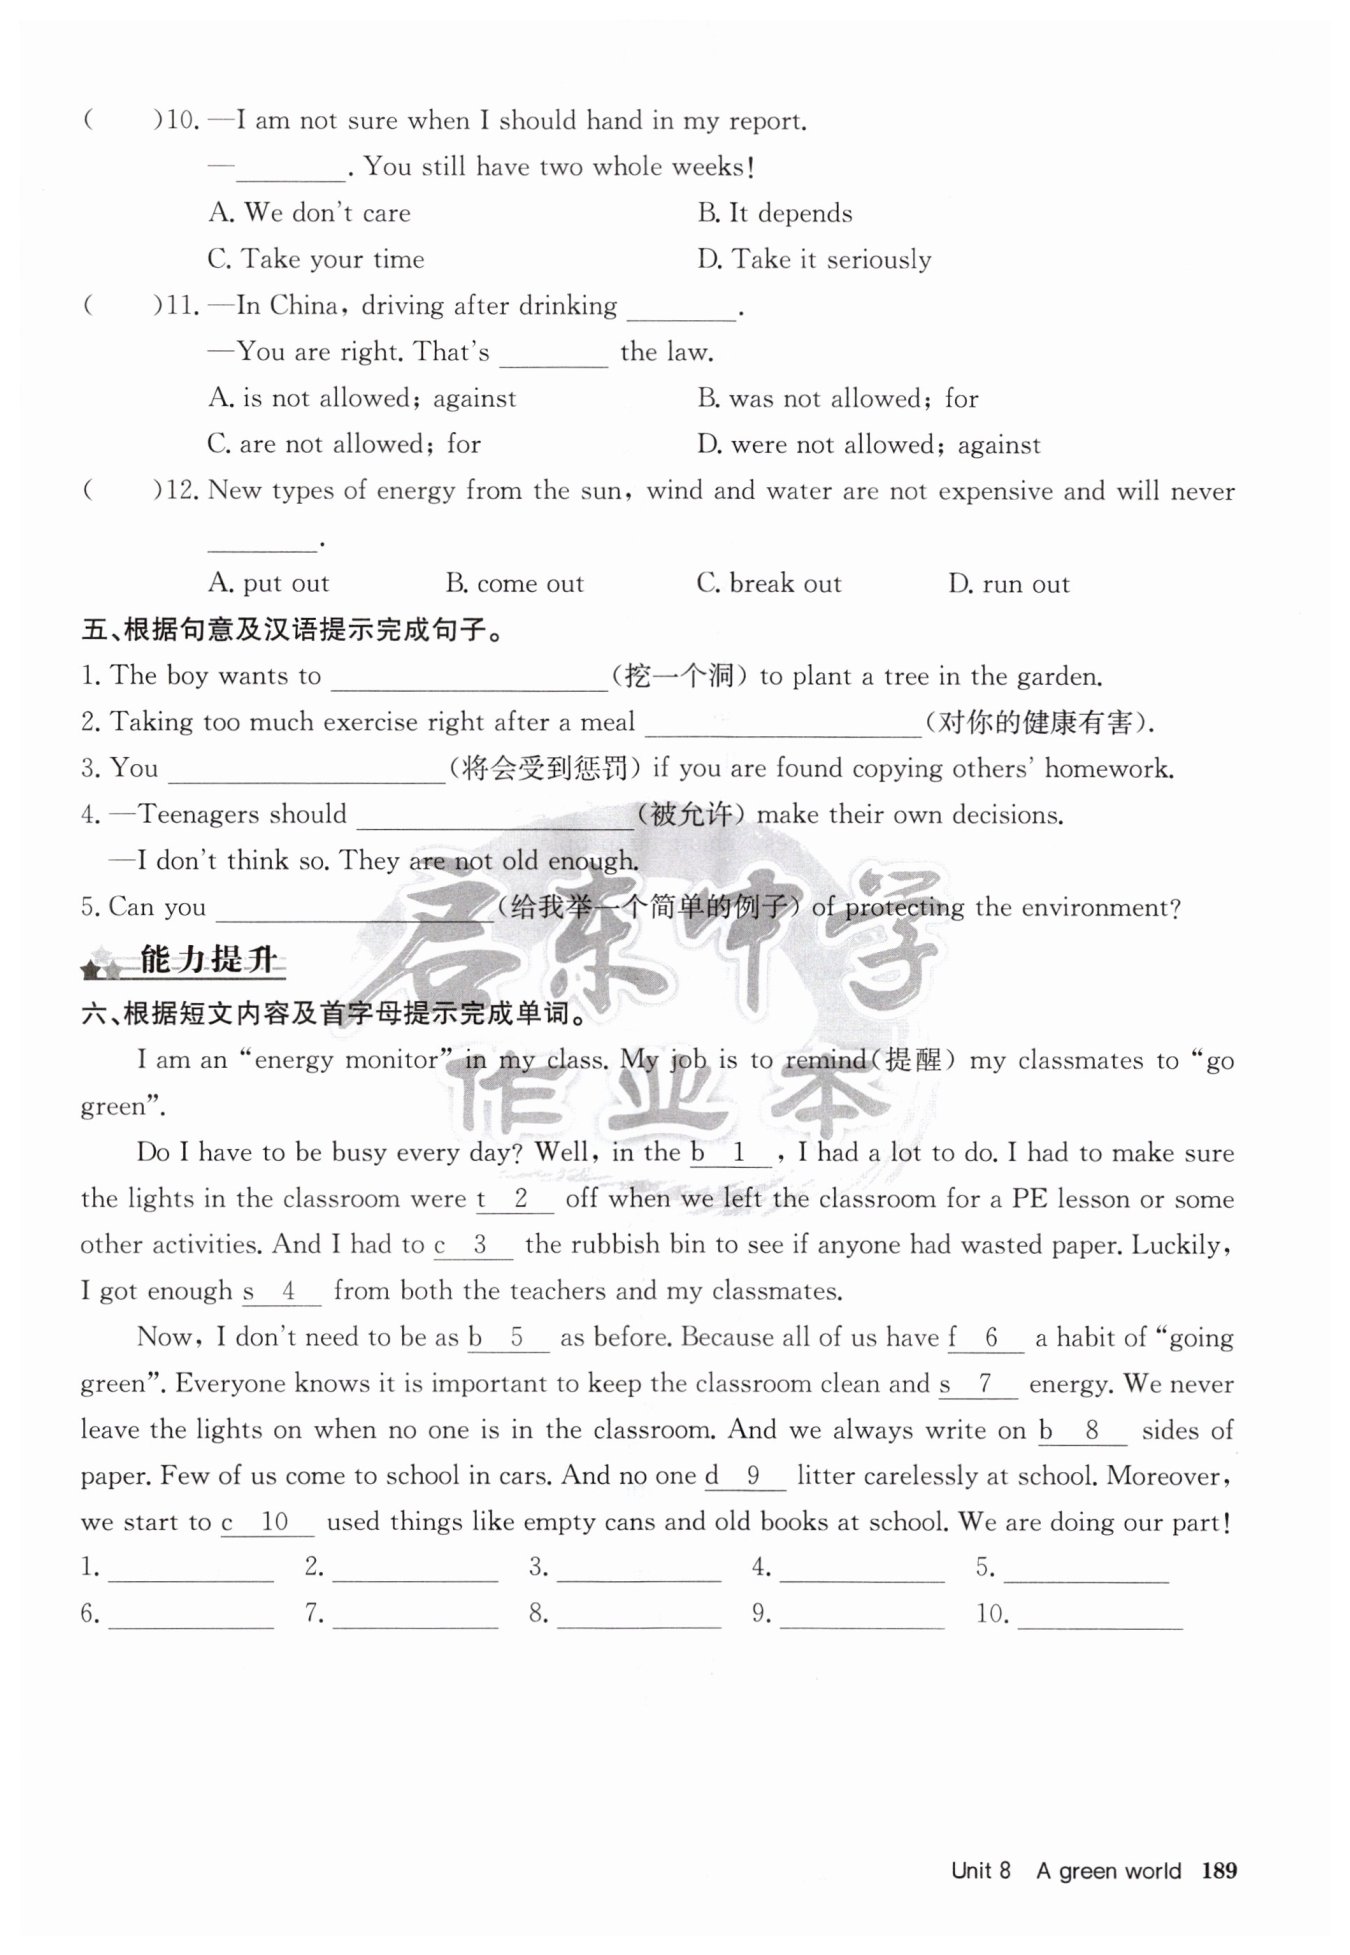 (　　)10. —I am not sure when I should hand in my report.
—________. You still have two whole weeks!
A. We don't care　　B. It depends
C. Take your time　　D. Take it seriously
(　　)11. —In China, driving after drinking ________.
—You are right. That's ________ the law.
A. is not allowed; against　　B. was not allowed; for
C. are not allowed; for　　D. were not allowed; against
(　　)12. New types of energy from the sun, wind and water are not expensive and will never
________.
A. put out　　B. come out　　C. break out　　D. run out
五、根据句意及汉语提示完成句子。
1. The boy wants to ____________________(挖一个洞) to plant a tree in the garden.
2. Taking too much exercise right after a meal ____________________(对你的健康有害).
3. You ____________________(将会受到惩罚) if you are found copying others' homework.
4. —Teenagers should ____________________(被允许) make their own decisions.
—I don't think so. They are not old enough.
5. Can you ____________________(给我举一个简单的例子) of protecting the environment?
能力提升
六、根据短文内容及首字母提示完成单词。
I am an “energy monitor” in my class. My job is to remind(提醒) my classmates to “go
green”.
Do I have to be busy every day? Well, in the b 1 , I had a lot to do. I had to make sure
the lights in the classroom were t 2 off when we left the classroom for a PE lesson or some
other activities. And I had to c 3 the rubbish bin to see if anyone had wasted paper. Luckily,
I got enough s 4 from both the teachers and my classmates.
Now, I don't need to be as b 5 as before. Because all of us have f 6 a habit of “going
green”. Everyone knows it is important to keep the classroom clean and s 7 energy. We never
leave the lights on when no one is in the classroom. And we always write on b 8 sides of
paper. Few of us come to school in cars. And no one d 9 litter carelessly at school. Moreover,
we start to c 10 used things like empty cans and old books at school. We are doing our part!
1. ____________ 2. ____________ 3. ____________ 4. ____________ 5. ____________
6. ____________ 7. ____________ 8. ____________ 9. ____________ 10. ____________
启东中学
作业本
Unit 8　A green world　189